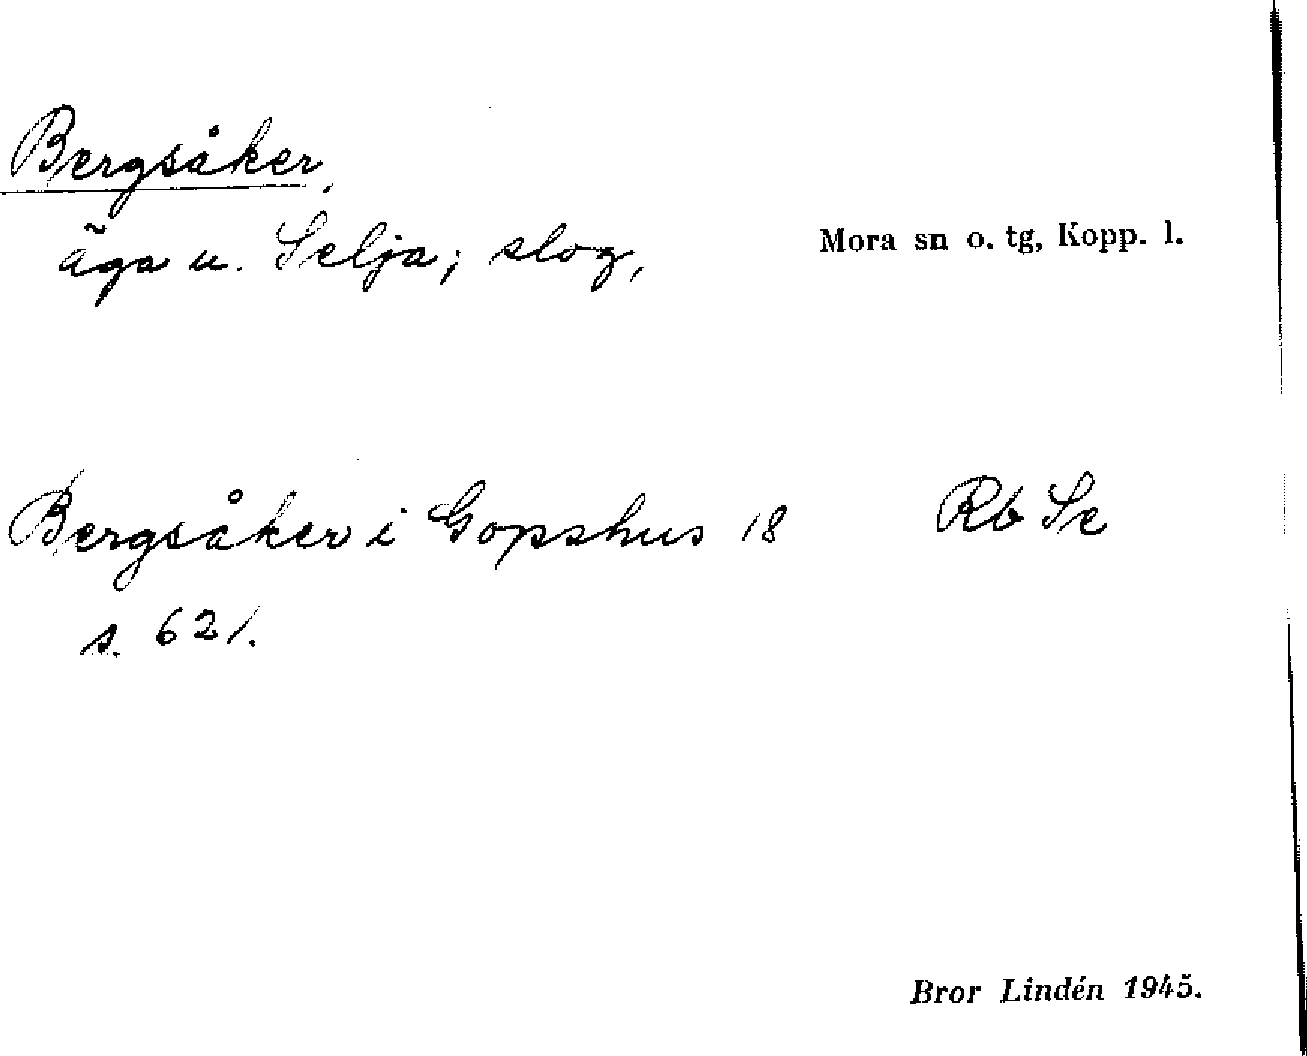 Bergsåker,
äga u. Selja; slog,
Mora sn o. tg, Kopp. l.
Bergsåker i Gopshus 18 Rb Se
s. 621.
Bror Lindén 1945.